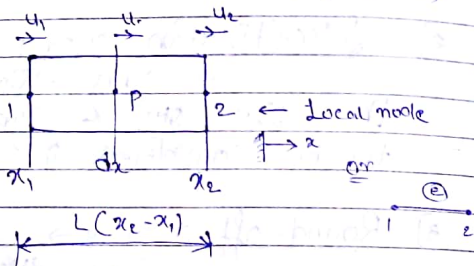 u₁ u. u₂
1 P 2 ← Local node
→ x
x₁ dx x₂ or
e
L(x₂-x₁) 1 2